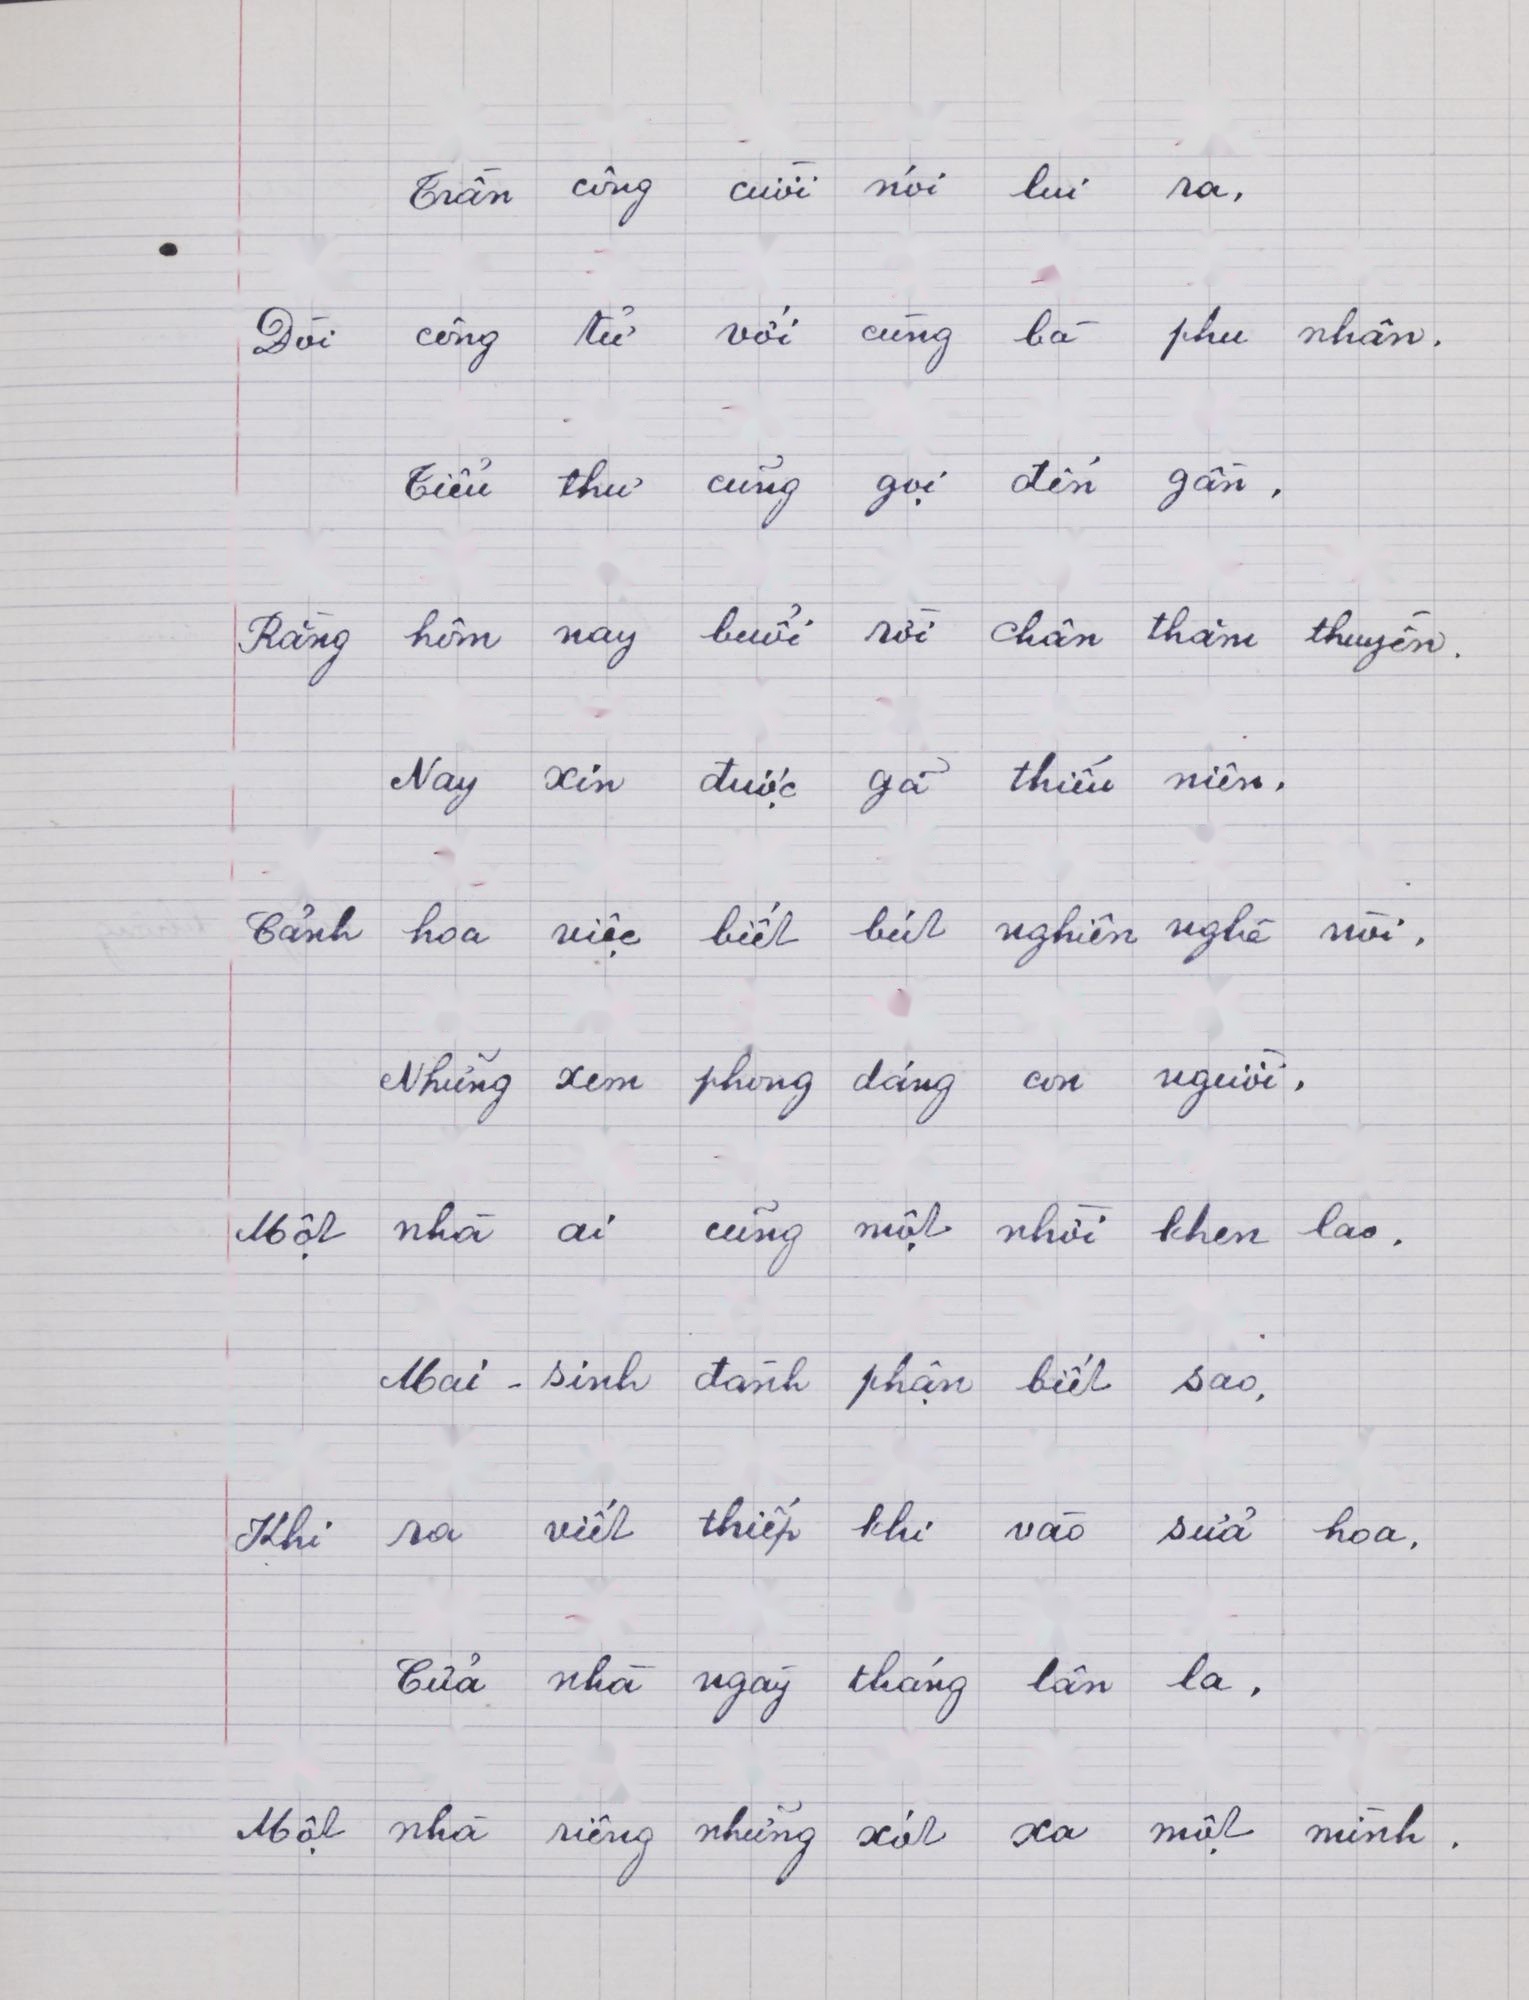 Trần công cười nói lui ra,
Đòi công tử với cùng bà phu nhân.
Tiểu thư cũng gọi đến gần,
Rằng hôm nay buổi rồi chân thăm thuyền.
Nay xin được gã thiếu niên,
Cảnh hoa việc biết bút nghiên nghề nòi,
Những xem phong dáng con người,
Một nhà ai cũng một nhời khen lao.
Mai - sinh đành phận biết sao,
Khi ra viết thiếp khi vào sửa hoa,
Cửa nhà ngày tháng lân la,
Một nhà riêng những xót xa một mình.